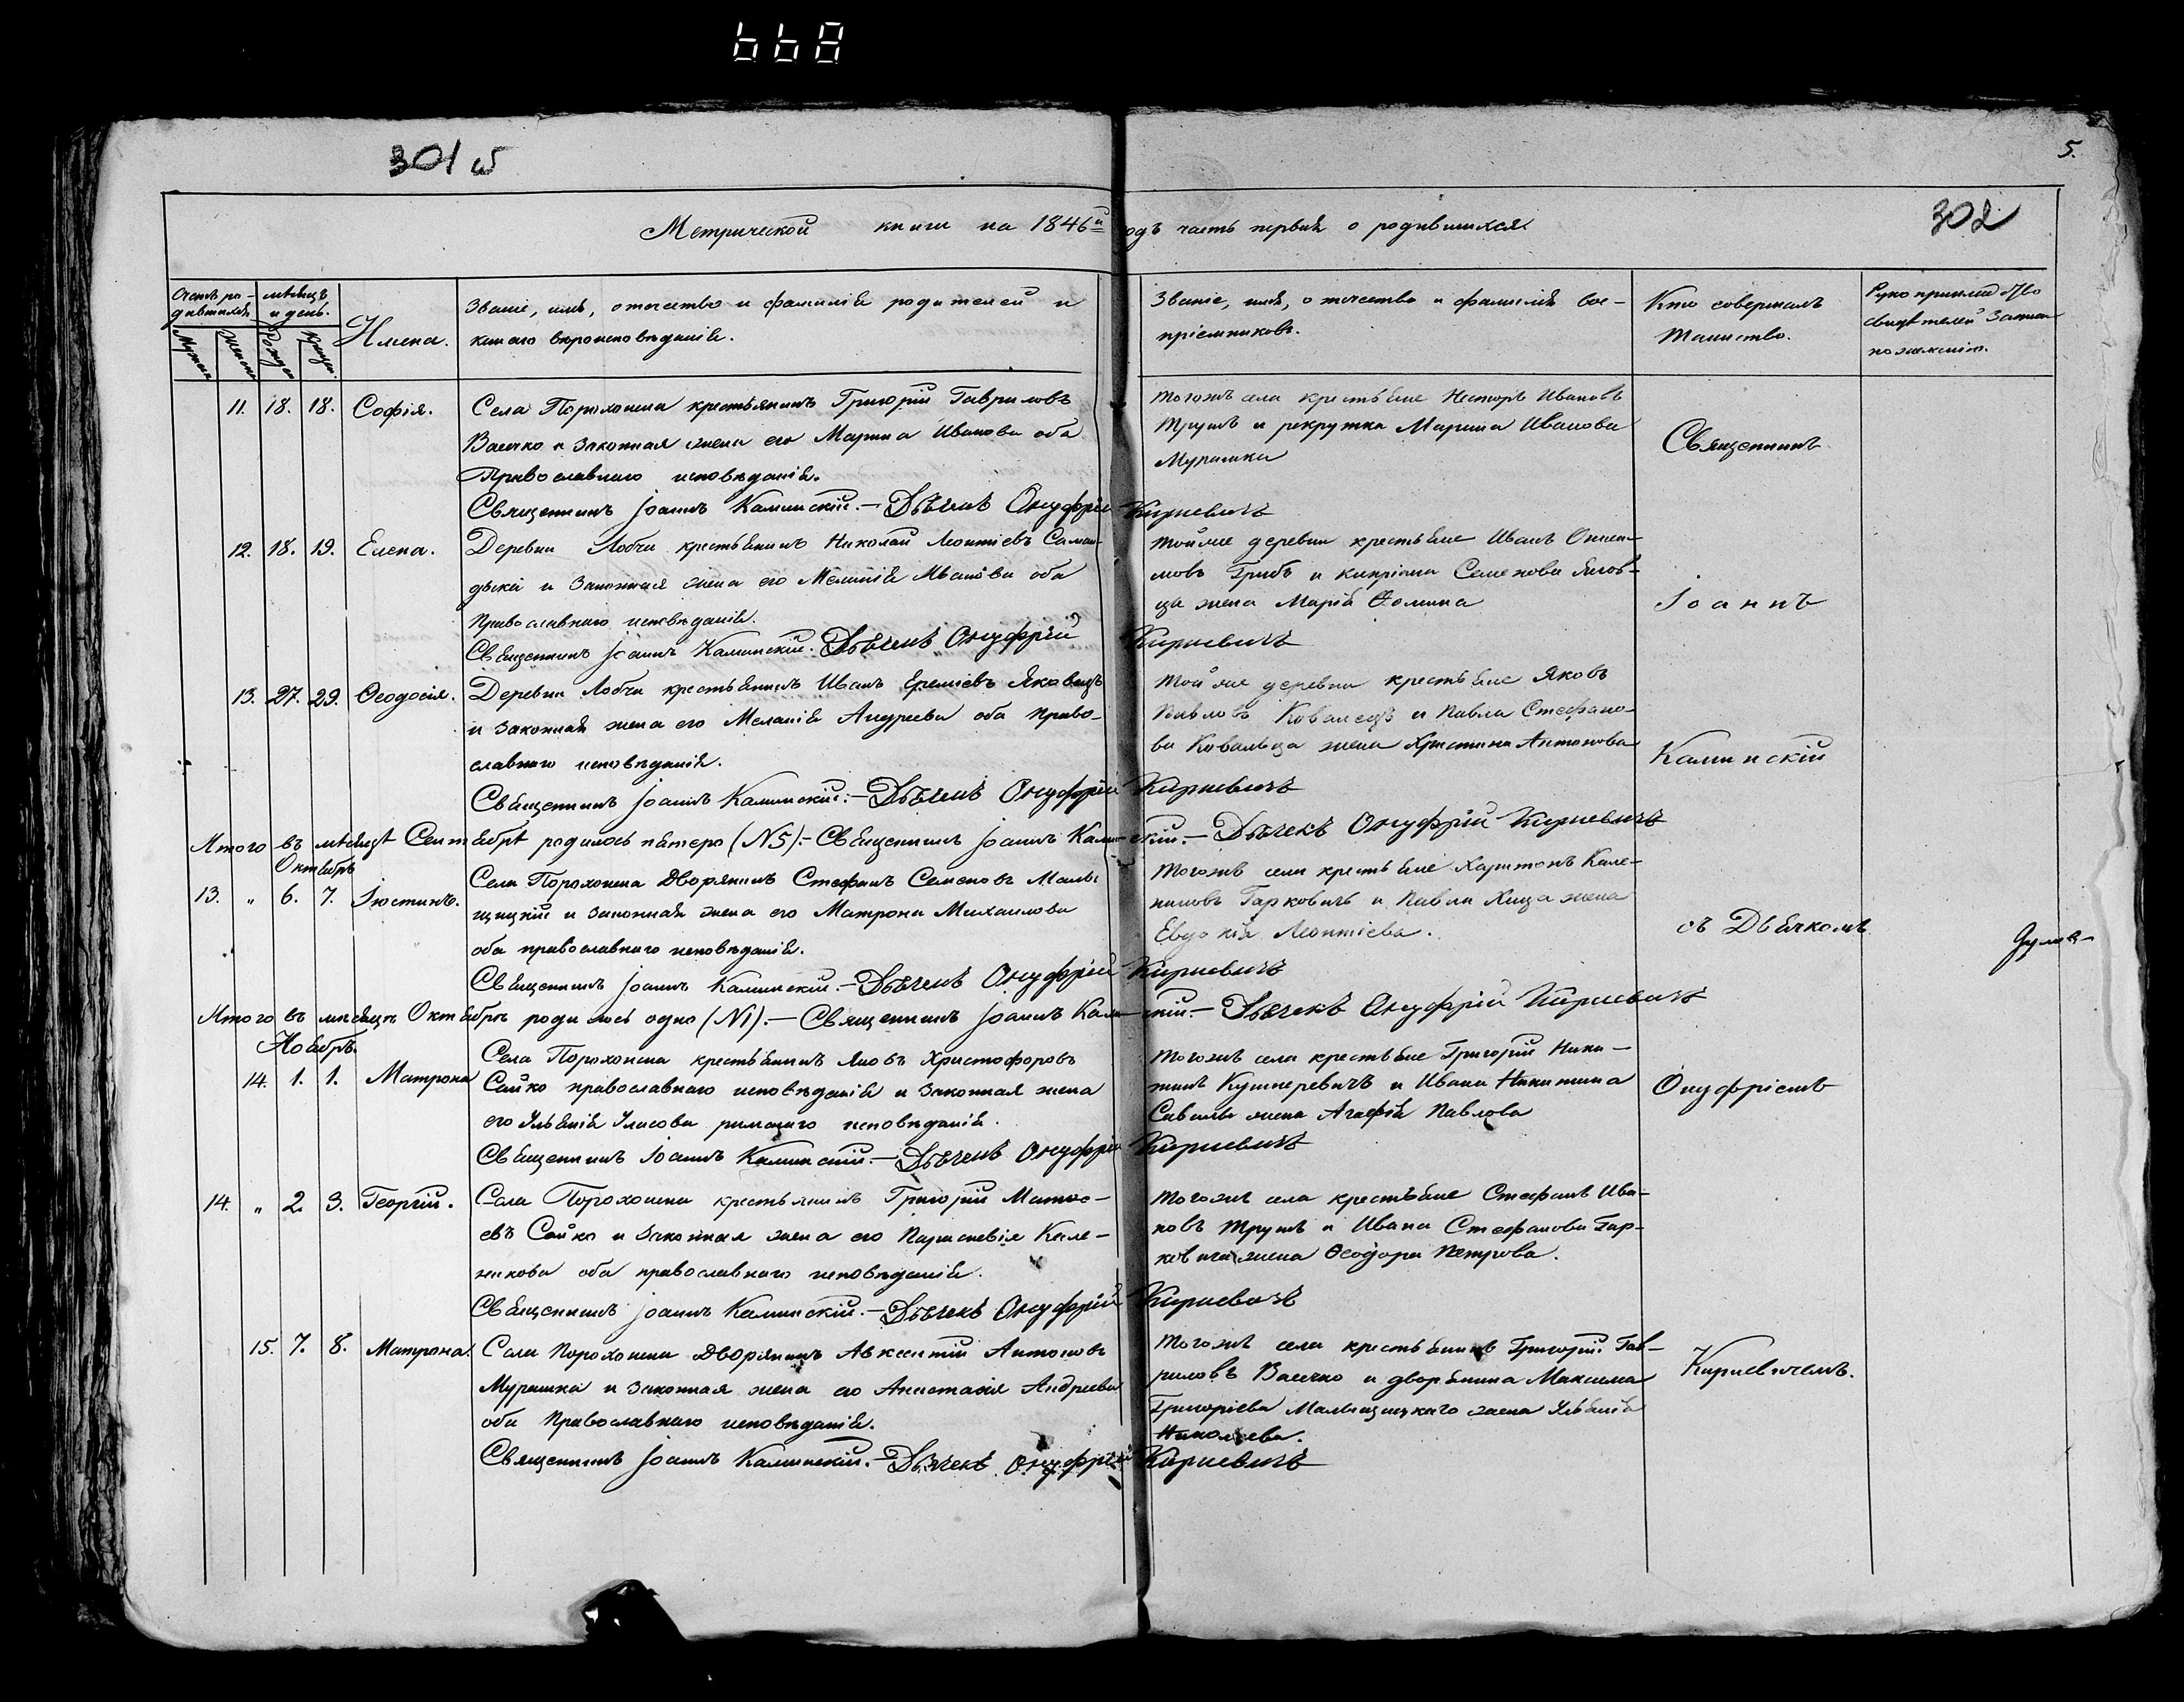 301 об
5.
302
Метрической книги на 1846й годъ часть первая о родившихся.
Счетъ родившихся
Мужеск.
Женск.
месяцъ и день.
Рожден.
Крещен.
Имена.
Званіе, имя, отчество и фамилія родителей и
какого вероисповѣданія.
Званіе, имя, отчество и фамилія вос-
пріемниковъ.
Кто совершалъ
таинство.
Рукоприкладство
свидѣтелей записи
по желанію.
11. 18. 18. Софія.
Села Порохонска крестьянинъ Григорій Гавриловъ
Васечко и законная жена его Марина Иванова оба
Православнаго исповѣданія.
Священникъ Іоаннъ Каминскій.— Дьячекъ Онуфрій Кирневичъ
Тогожъ села крестьяне Несторъ Ивановъ
Трушъ и рекрутка Марина Иванова
Мурашка
Священникъ
12. 18. 19. Елена.
Деревни Лобчи крестьянинъ Николай Леонтіевъ
и законная жена его Меланія Иванова оба
Православнаго исповѣданія.
Священникъ Іоаннъ Каминскій. Дьячекъ Онуфрій Кирневичъ
Тойже деревни крестьяне Иванъ
Грибъ и Кипріяна Семенова
жена Марія Фомина
Іоаннъ
13. 27. 29. Ѳеодосія.
Деревни Лобчи крестьянинъ Иванъ Еремѣевъ Яковецъ
и законная жена его Меланія Андреева оба Право-
славнаго исповѣданія.
Священникъ Іоаннъ Каминскій.— Дьячекъ Онуфрій Кирневичъ
Тойже деревни крестьяне Яковъ
Павловъ Ковалецъ и Павла Стефано-
ва Ковальца жена Христина Антонова
Каминскій
Итого въ месяцѣ Сентябрѣ родилось пятеро (N5).— Священникъ Іоаннъ Каминскій.— Дьячекъ Онуфрій Кирневичъ
Октябрь
13. „ 6. 7. Іюстинъ.
Села Порохонска Дворянинъ Стефанъ Семеновъ Малы-
щицкій и законная жена его Матрона Михаилова
оба православнаго исповѣданія.
Священникъ Іоаннъ Каминскій.— Дьячекъ Онуфрій Кирневичъ
Тогожъ села крестьяне Харитонъ Кале-
никовъ Гарковичъ и Павла Хица жена
Евдокія Леонтіева.
съ Дьячкомъ
Итого въ месяцѣ Октябрѣ родилось одно (N1).— Священникъ Іоаннъ Каминскій.— Дьячекъ Онуфрій Кирневичъ
Ноябрь.
14. 1. 1. Матрона
Села Порохонска крестьянинъ Яковъ Христофоровъ
Сайко православнаго исповѣданія и законная жена
его Ульянія Уласова римскаго исповѣданія.
Священникъ Іоаннъ Каминскій.— Дьячекъ Онуфрій Кирневичъ
Тогожъ села крестьяне Григорій Ники-
тинъ Кушнеревичъ и Ивана Никитина
жена Агафія Павлова
Онуфріемъ
14. „ 2. 3. Георгій.
Села Порохонска крестьянинъ Григорій Матѳе-
евъ Сайко и законная жена его Параскевія Кале-
никова оба православнаго исповѣданія.
Священникъ Іоаннъ Каминскій.— Дьячекъ Онуфрій Кирневичъ
Тогожъ села крестьяне Стефанъ Ива-
новъ Трушъ и Ивана Стефанова Гар-
ковича жена Ѳеодора Петрова.
15. 7. 8. Матрона.
Села Порохонска Дворянинъ Авксентій Антоновъ
Мурашка и законная жена его Анастасія Андреева
оба Православнаго исповѣданія.
Священникъ Іоаннъ Каминскій.— Дьячекъ Онуфрій Кирневичъ
Тогожъ села крестьянинъ Григорій Гав-
риловъ Васечко и дворянина Максима
Григоріева Малыщицкаго жена Ульянія
Николаева.
Кирневичемъ.